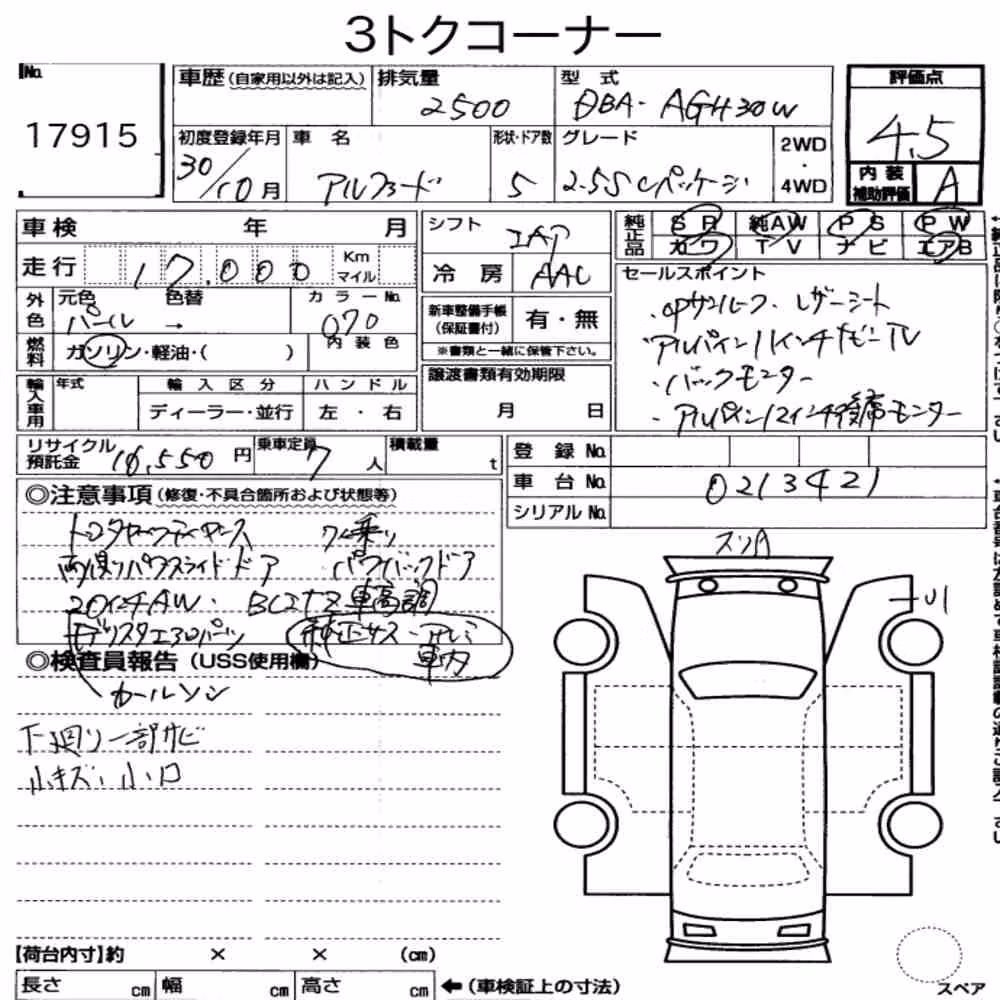 3トクコーナー
No. 17915
車歴 (自家用以外は記入) 排気量 2500 型 式 DBA- AGH30W
評価点 4.5
初度登録年月 30/10月 車 名 アルファード 形状・ドア数 5 グレード 2.5S Cパッケージ 2WD・4WD
内装補助評価 A
車検 年 月 シフト IAT 純正品 SR 純AW PS PW
カワ TV ナビ エアB
走行 17,000 Km マイル 冷 房 AAC
セールスポイント
外色 元色 パール 色替 → カラーNo. 070
・サンルーフ ・レザーシート
新車整備手帳(保証書付) 有・無
燃料 ガソリン・軽油・( ) 内装色
・アルパイン11インチナビ TV
※書類と一緒に保管下さい。
・バックモニター
輸入車用 年式 輸入区分 ハンドル
ディーラー・並行 左・右
譲渡書類有効期限
月 日
・アルパイン12インチ後席モニター
リサイクル預託金 10,550円 乗車定員 7人 積載量 t
登 録 No.
車 台 No. 0213421
シリアル No.
◎注意事項 (修復・不具合箇所および状態等)
7人乗り
両側パワスライドドア パワバックドア
20インチAW・ BLITZ車高調
モデリスタエアロパーツ 純正サス・アルミ
車内
◎検査員報告 (USS使用欄)
下廻り一部サビ
小キズ・小凹
スリA
U1
【荷台内寸】約 × × (cm)
長さ cm 幅 cm 高さ cm ←(車検証上の寸法)
スペア